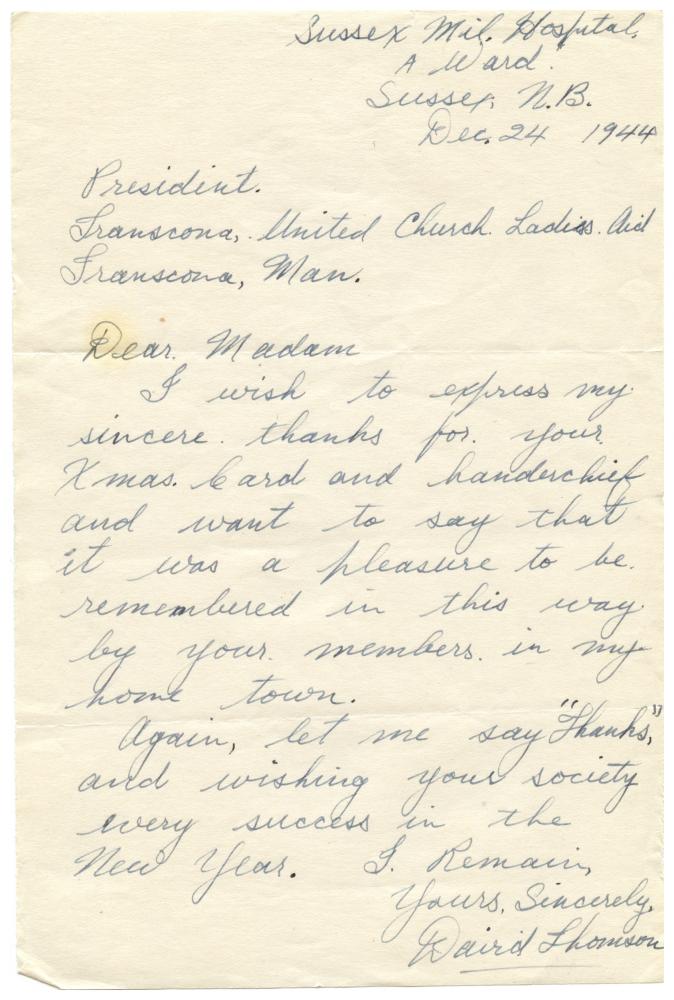 Sussex Mil. Hospital,
A Ward.
Sussex, N.B.
Dec. 24 1944
President.
Transcona, United Church. Ladies. Aid
Transcona, Man.
Dear. Madam
I wish to express my
sincere. thanks for. your
Xmas. Card and handerchief
and want to say that
it was a pleasure to be.
remembered in this way.
by your. members. in my
home town.
Again, let me say "Thanks,"
and wishing your society
every success in the
New Year. I. Remain,
Yours, Sincerely,
David Thomson